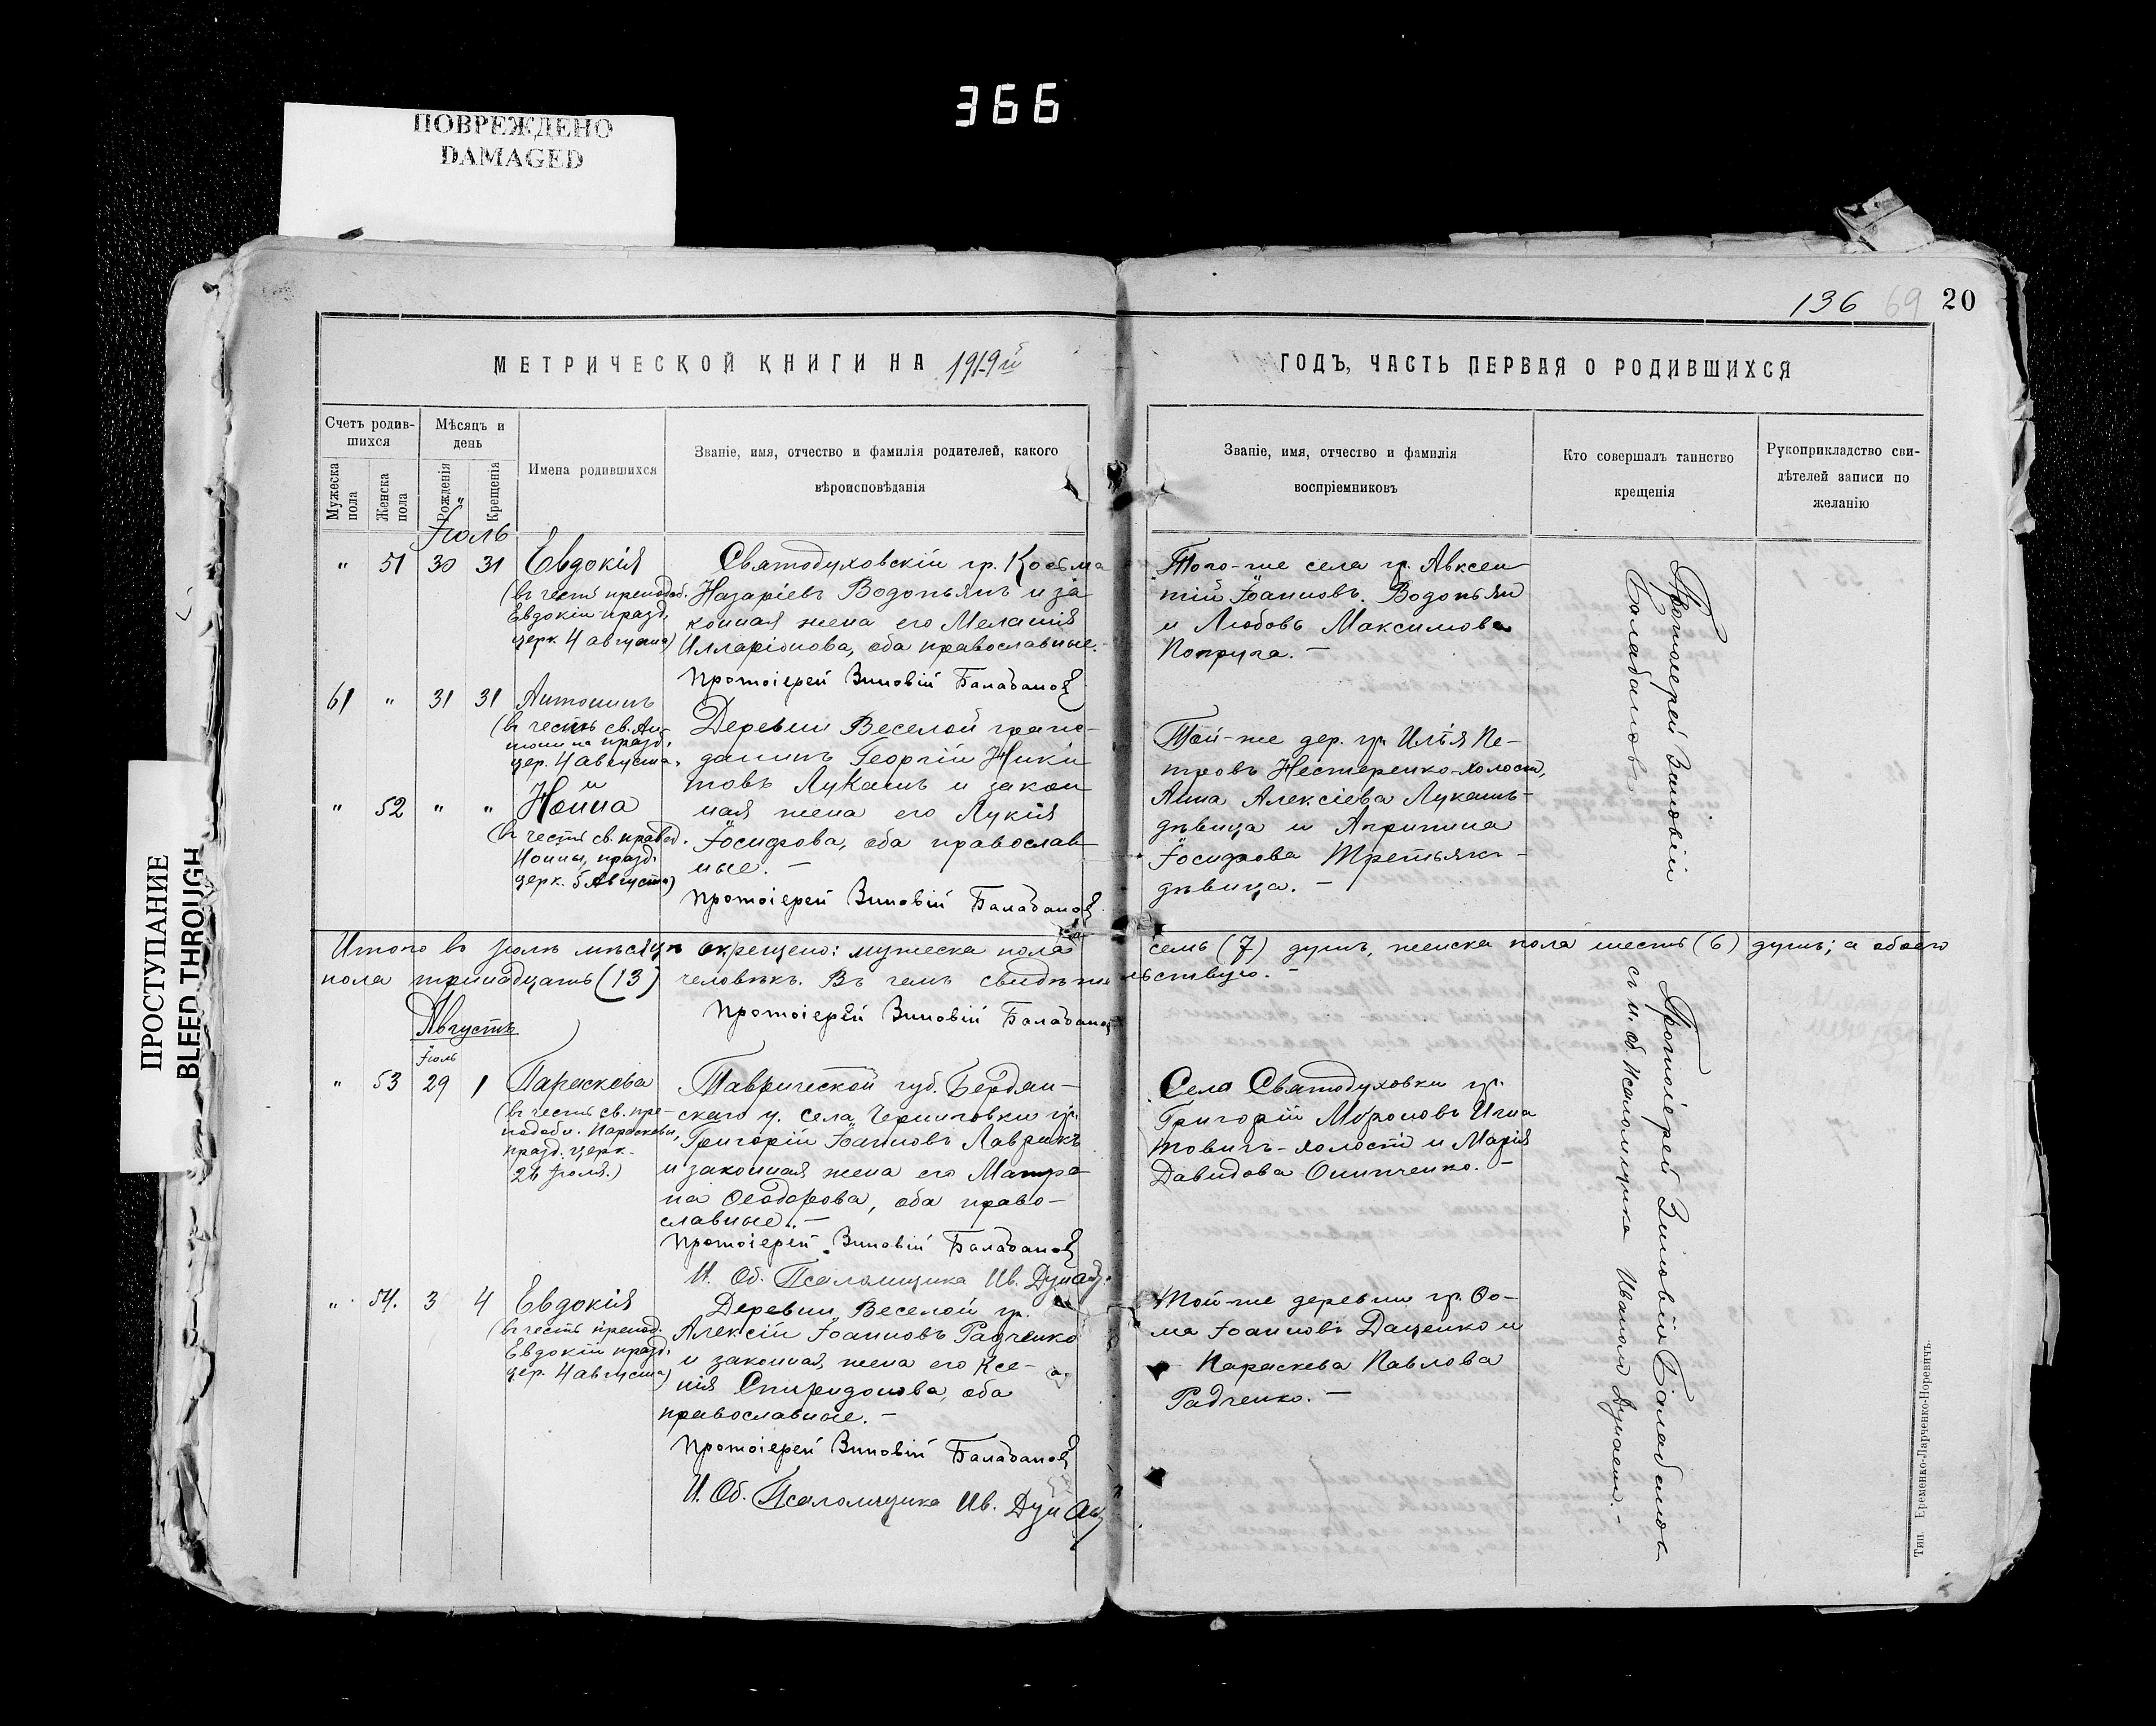 366
ПОВРЕЖДЕНО
DAMAGED
ПРОСТУПАНИЕ
BLEED THROUGH
136 69 20
МЕТРИЧЕСКОЙ КНИГИ НА 1919й
ГОДЪ, ЧАСТЬ ПЕРВАЯ О РОДИВШИХСЯ
Счетъ родив-
шихся
Мужеска
пола
Женска
пола
Мѣсяцъ и
день
Рожденія
Крещенія
Имена родившихся
Званіе, имя, отчество и фамилія родителей, какого
вѣроисповѣданія
Званіе, имя, отчество и фамилія
воспріемниковъ
Кто совершалъ таинство
крещенія
Рукоприкладство сви-
дѣтелей записи по
желанію
Іюль
" 51 30 31 Евдокія
(въ честь преподоб.
Евдокіи празд.
церк. 4 августа)
Святодуховскій гр. Косьма
Назаріевъ Водопьянъ и за
конная жена его Меланія
Илларіонова, оба православные.
Протоіерей Зиновій Балабановъ
Того-же села гр. Авксен
тій Іоанновъ Водопьян
и Любовь Максимова
Попруга. –
Протоіерей Зиновій
Балабановъ
61 " 31 31 Антонинъ
(въ честь св. Ан-
тонина празд.
цер. 4 августа.
и
" 52 " " Нонна
(въ честь св. правед.
Нонны, празд.
церк. 5 Августа)
Деревни Веселой граж-
данинъ Георгій Ники
товъ Лукашъ и закон
ная жена его Лукія
Іосифова, оба православ
ные. –
Протоіерей Зиновій Балабановъ
Той-же дер. гр. Илья Пе-
тровъ Нестеренко-холост,
Анна Алексіева Лукашъ-
дѣвица и Агрипина
Іосифова Третьякъ-
дѣвица. –
Итого въ Іюлѣ мѣсяцѣ окрещено: мужеска пола семь (7) душъ, женска пола шесть (6) душъ; а обоего
пола тринадцать (13) человѣкъ. Въ чемъ свидѣтельствую. –
Протоіерей Зиновій Балабановъ
Августъ
Іюль
" 53 29 1 Параскева
(въ честь св. пре-
подобн. Параскевы,
празд. церк.
26 Іюля.)
Таврической губ. Бердян-
скаго у. села Черниговки гр.
Григорій Іоанновъ Лаврикъ
и законная жена его Матро
на Ѳеодорова, оба право-
славные. –
Протоіерей Зиновій Балабановъ
И. Об. Псаломщика Ив. Дунаев
Села Святодуховки гр.
Григорій Мѵроновъ Игна
товичъ-холост и Марія
Давидова Онипченко. –
Протоіерей Зиновій Балабановъ
съ и. об. псаломщика Иваном Дунаевым. –
" 54. 3 4 Евдокія
(въ честь препод.
Евдокіи празд.
цер. 4 августа)
Деревни Веселой гр.
Алексій Іоанновъ Радченко
и законная жена его Ксе-
нія Спиридонова, оба
православные. –
Протоіерей Зиновій Балабановъ
И. Об. Псаломщика Ив. Дунаев
Той-же деревни гр. Ѳо-
ма Іоанновъ Даценко и
Параскева Павлова
Радченко. –
Тип. Еременко-Ларченко-Норевичъ.